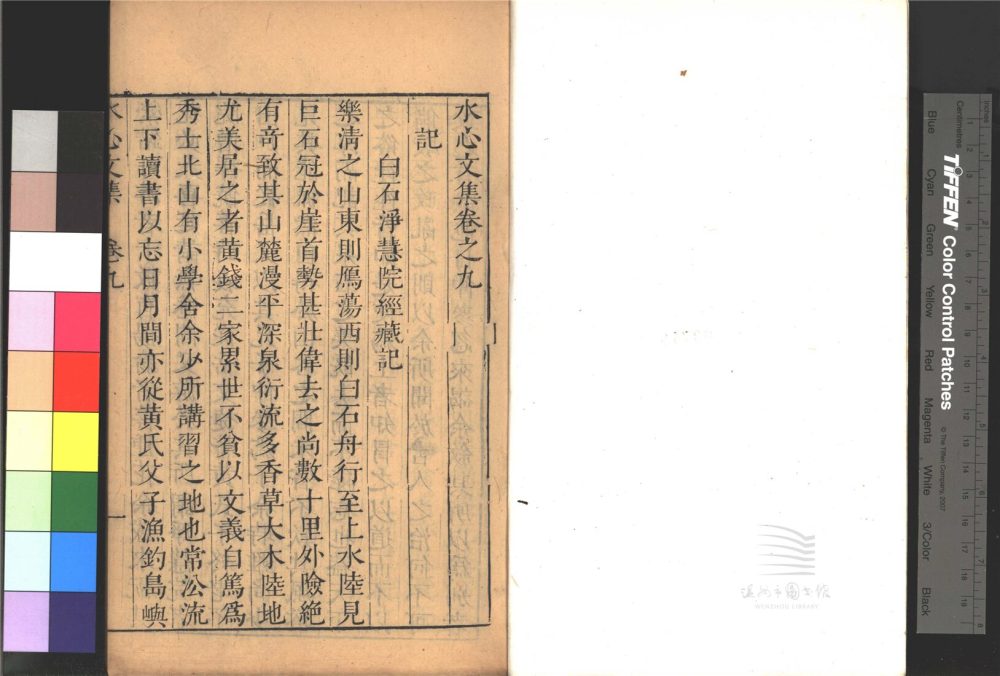 水心文集卷之九
記
白石淨慧院經藏記
樂清之山東則鴈蕩西則白石舟行至上水陸見
巨石冠於崖首勢甚壯偉去之尚數十里外險絶
有奇致其山麓漫平深泉衍流多香草大木陸地
尤美居之者黄錢二家累世不貧以文義自篤爲
秀士北山有小學舍余少所講習之地也常沿流
上下讀書以忘日月間亦從黄氏父子漁釣島嶼
水心文集 卷九 一
溫州市圖書館
WENZHOU LIBRARY
inches
Centimetres
TIFFEN Color Control Patches
© The Tiffen Company, 2007
Blue
Cyan
Green
Yellow
Red
Magenta
White
3/Color
Black